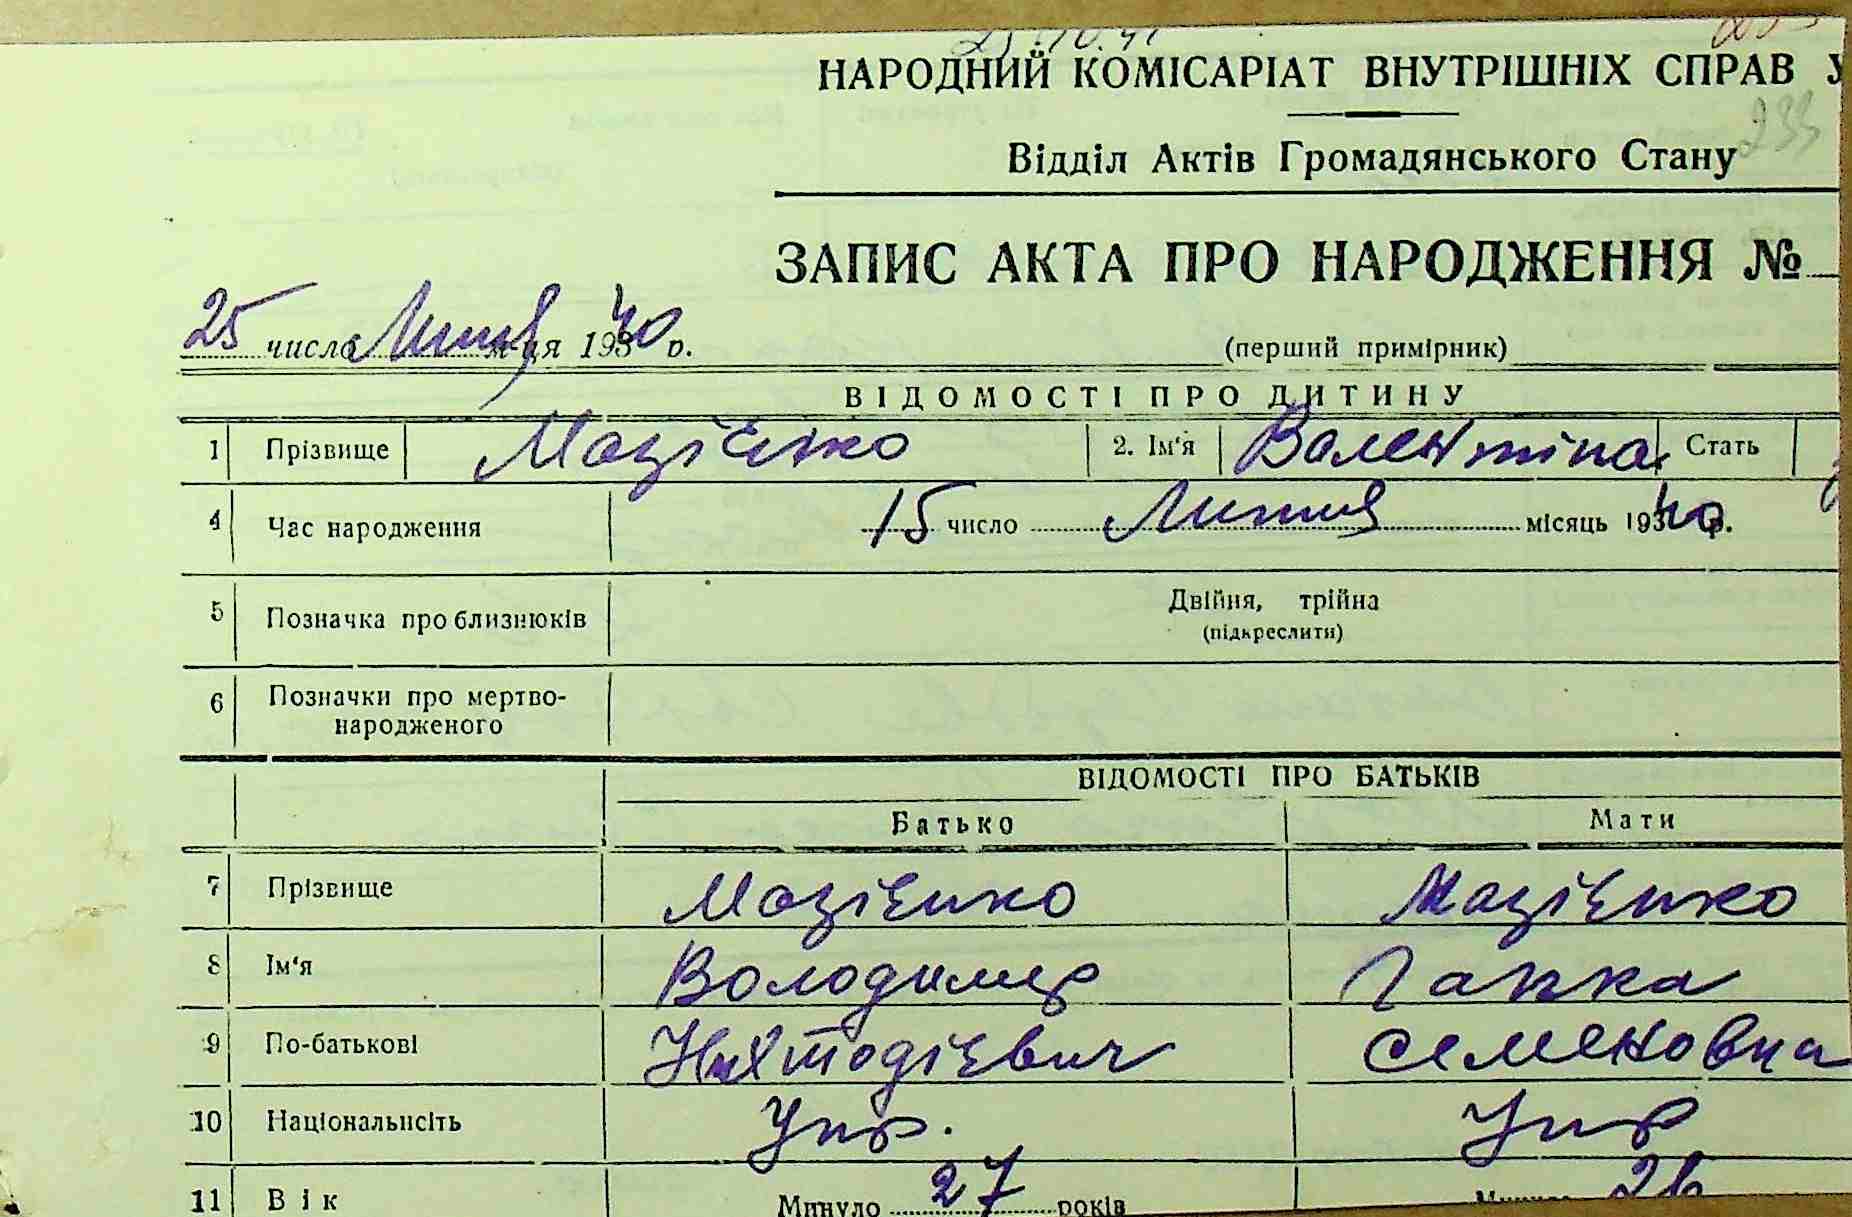 25.10.41
НАРОДНИЙ КОМІСАРІАТ ВНУТРІШНІХ СПРАВ У
233
Відділ Актів Громадянського Стану
ЗАПИС АКТА ПРО НАРОДЖЕННЯ №
25 число Липня м-ця 1940 р.
(перший примірник)
ВІДОМОСТІ ПРО ДИТИНУ
1 Прізвище Мазієнко 2. Ім'я Валентина Стать
4 Час народження 15 число Липня місяць 1940 р.
5 Позначка про близнюків Двійня, трійна
(підкреслити)
6 Позначки про мертво-
народженого
ВІДОМОСТІ ПРО БАТЬКІВ
Батько Мати
7 Прізвище Мазієнко Мазієнко
8 Ім'я Володимир Гапка
9 По-батькові Семеновна
10 Національність Укр. Укр
11 Вік Минуло 27 років Минуло 26